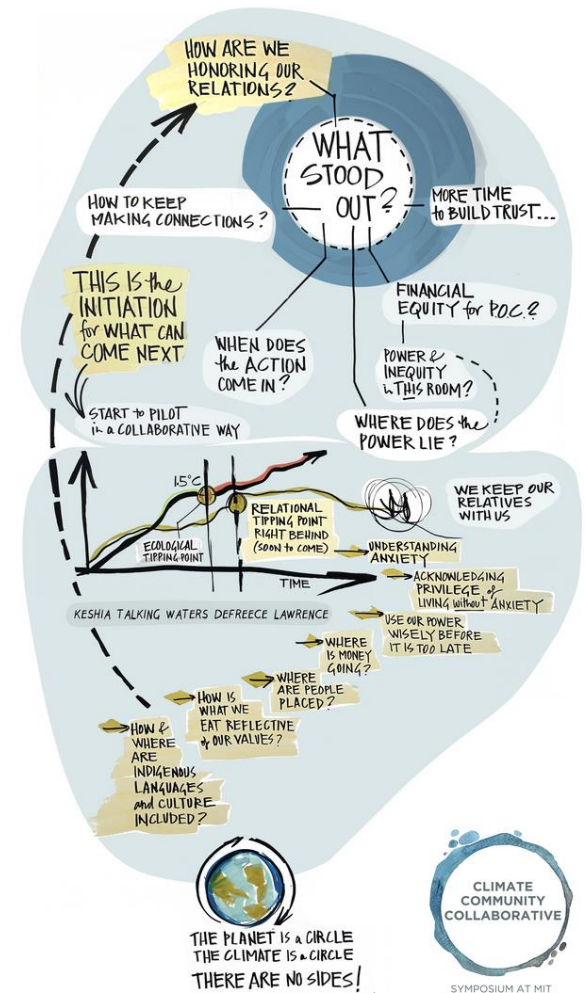 HOW ARE WE
HONORING OUR
RELATIONS?
WHAT
STOOD
OUT?
HOW TO KEEP
MAKING CONNECTIONS?
MORE TIME
to BUILD TRUST...
THIS IS the
INITIATION
for WHAT CAN
COME NEXT
FINANCIAL
EQUITY for P.O.C.?
WHEN DOES
the ACTION
COME IN?
POWER &
INEQUITY
in THIS ROOM?
START to PILOT
in a COLLABORATIVE WAY
WHERE DOES the
POWER LIE?
1.5°C
ECOLOGICAL
TIPPING POINT
RELATIONAL
TIPPING POINT
RIGHT BEHIND
(SOON to COME)
WE KEEP OUR
RELATIVES
WITH US
TIME
KESHIA TALKING WATERS DEFREECE LAWRENCE
UNDERSTANDING
ANXIETY
ACKNOWLEDGING
PRIVILEGE of
LIVING without ANXIETY
USE OUR POWER
WISELY BEFORE
IT IS TOO LATE
WHERE
IS MONEY
GOING?
WHERE
ARE PEOPLE
PLACED?
HOW IS
WHAT WE
EAT REFLECTIVE
of OUR VALUES?
HOW &
WHERE
ARE
INDIGENOUS
LANGUAGES
and CULTURE
INCLUDED?
THE PLANET IS a CIRCLE
THE CLIMATE IS a CIRCLE
THERE ARE NO SIDES!
CLIMATE
COMMUNITY
COLLABORATIVE
SYMPOSIUM AT MIT